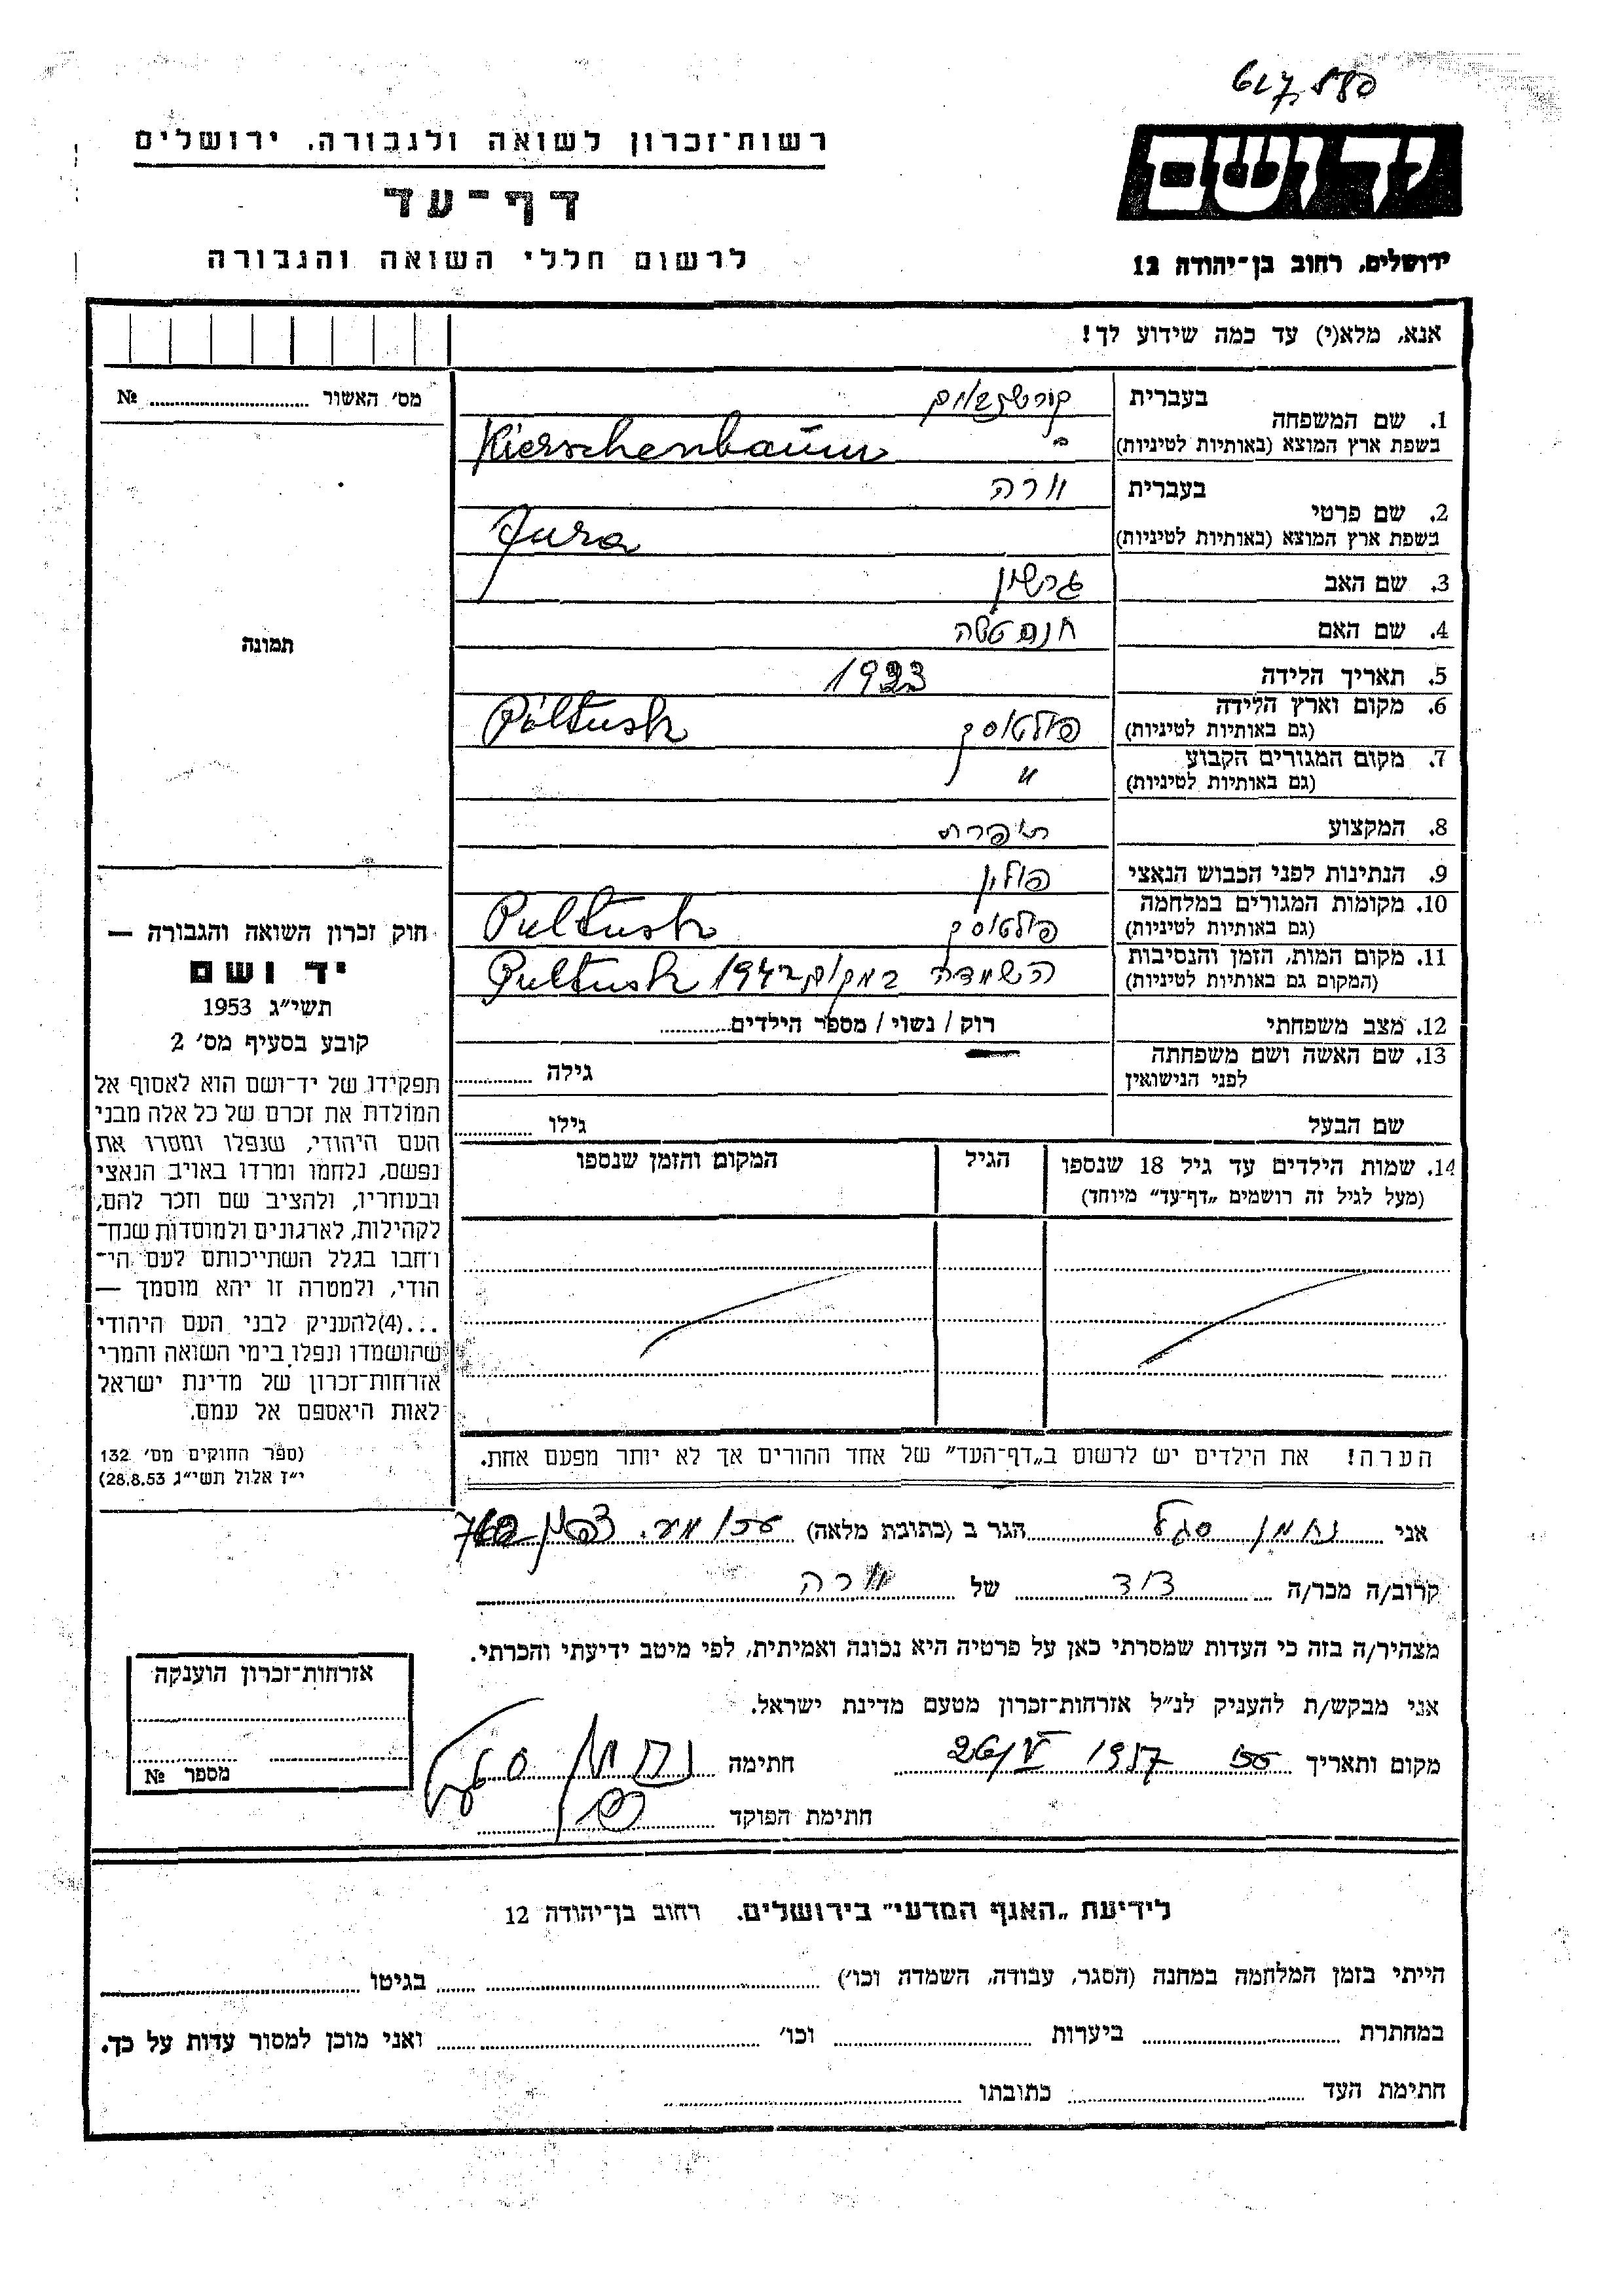 רשות־זכרון לשואה ולגבורה, ירושלים
דף־עד
לרשום חללי השואה והגבורה
יד ושם
ירושלים, רחוב בן־יהודה 12
אנא, מלא(י) עד כמה שידוע לך!
מס׳ האשור № ........
1. שם המשפחה
בעברית
בשפת ארץ המוצא (באותיות לטיניות) Kierschenbaum
2. שם פרטי
בעברית
בשפת ארץ המוצא (באותיות לטיניות) Jura
3. שם האב גרשון
4. שם האם
5. תאריך הלידה 1923
6. מקום וארץ הלידה
(גם באותיות לטיניות) פולטוסק Pultusk
7. מקום המגורים הקבוע
(גם באותיות לטיניות) "
8. המקצוע תופרת
9. הנתינות לפני הכבוש הנאצי פולין
10. מקומות המגורים במלחמה
(גם באותיות לטיניות) פולטוסק Pultusk
11. מקום המות, הזמן והנסיבות
(המקום גם באותיות לטיניות) השמדה במקום 1942 Pultusk
12. מצב משפחתי רוק / נשוי / מספר הילדים........
13. שם האשה ושם משפחתה
לפני הנישואין גילה ........
שם הבעל גילו ........
14. שמות הילדים עד גיל 18 שנספו
(מעל לגיל זה רושמים „דף־עד" מיוחד)
הגיל
המקום והזמן שנספו
הערה! את הילדים יש לרשום ב„דף־העד" של אחד ההורים אך לא יותר מפעם אחת.
תמונה
חוק זכרון השואה והגבורה —
יד ושם
תשי״ג 1953
קובע בסעיף מס׳ 2
תפקידו של יד־ושם הוא לאסוף אל
המולדת את זכרם של כל אלה מבני
העם היהודי, שנפלו ומסרו את
נפשם, נלחמו ומרדו באויב הנאצי
ובעוזריו, ולהציב שם וזכר להם,
לקהילות, לארגונים ולמוסדות שנח־
רבו בגלל השתייכותם לעם הי־
הודי, ולמטרה זו יהא מוסמך —
...(4)להעניק לבני העם היהודי
שהושמדו ונפלו בימי השואה והמרי
אזרחות־זכרון של מדינת ישראל
לאות היאספם אל עמם.
(ספר החוקים מס׳ 132
י״ז אלול תשי״ג 28.8.53)
אני נחמן סגל הגר ב (כתובת מלאה)
קרוב/ה מכר/ה דוד של
מצהיר/ה בזה כי העדות שמסרתי כאן על פרטיה היא נכונה ואמיתית, לפי מיטב ידיעתי והכרתי.
אני מבקש/ת להעניק לנ״ל אזרחות־זכרון מטעם מדינת ישראל.
מקום ותאריך חתימה נחמן סגל
חתימת הפוקד
אזרחות־זכרון הוענקה
מספר №
לידיעת „האגף המדעי" בירושלים. רחוב בן־יהודה 12
הייתי בזמן המלחמה במחנה (הסגר, עבודה, השמדה וכו׳) ........ בגיטו ........
במחתרת ........ ביערות ........ וכו׳ ........ ואני מוכן למסור עדות על כך.
חתימת העד ........ כתובתו ........